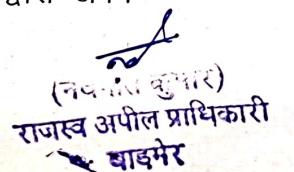 कुमार)
राजस्व अपील प्राधिकारी
बाड़मेर